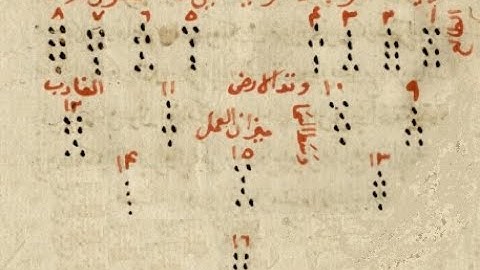 الطالع ١ ٢ ٣ ٤ ٥ ٦ ٧ ٨
٩ ١٠ وتد الارض ١١ الغارب
١٢
وسط السما
ميزان العمل
١٣ ١٥ ١٤
١٦